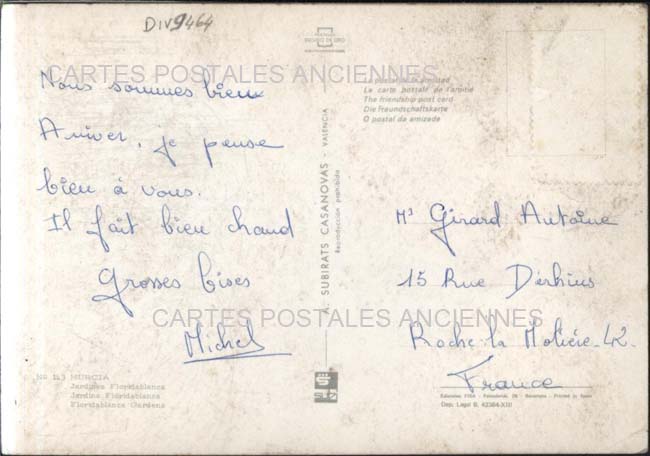 DIV9464
ESCUDO DE ORO
CARTES POSTALES ANCIENNES
Nous sommes bien
Arriver, je pense
bien à vous.
Il fait bien chaud
Grosses bises
Michel
La postal de la amistad
La carte postale de l'amitié
The friendship post card
Die Freundschaftskarte
O postal da amizade
A. SUBIRATS CASANOVAS - VALENCIA
Reproducción prohibida
Girard Antoine
15 Rue
Roche-la Molière-42-
France
CARTES POSTALES ANCIENNES
MURCIA
Jardines Floridablanca
Jardins Floridablanca
Floridablanca Gardens
Dep. Legal B. 42364-XIII